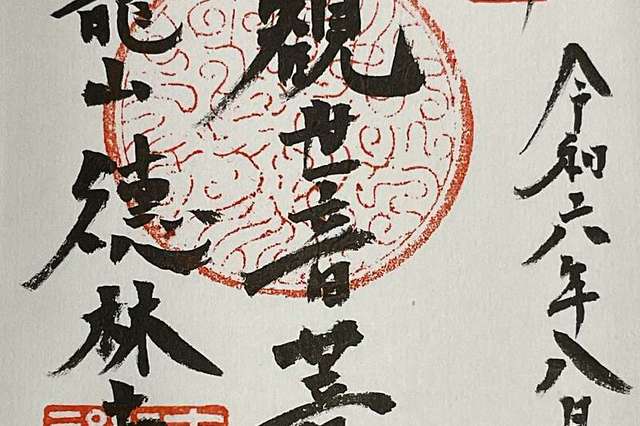 令和六年八月
観世音菩
龍山德林寺